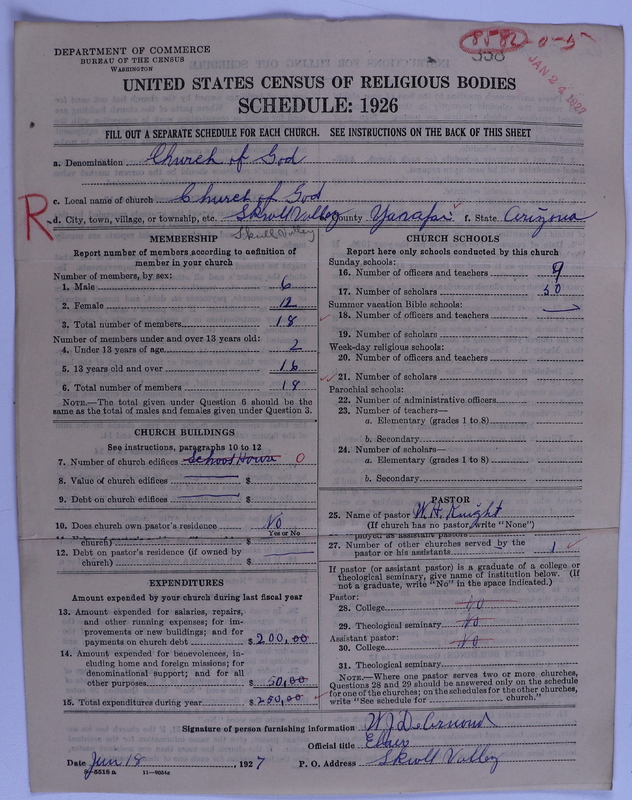 8582 0-5
338
JAN 24 1927
DEPARTMENT OF COMMERCE
BUREAU OF THE CENSUS
WASHINGTON
UNITED STATES CENSUS OF RELIGIOUS BODIES
SCHEDULE: 1926
FILL OUT A SEPARATE SCHEDULE FOR EACH CHURCH. SEE INSTRUCTIONS ON THE BACK OF THIS SHEET
a. Denomination Church of God
R
c. Local name of church Church of God
d. City, town, village, or township, etc. Skroll Valley County Yanapai f. State Arizona
Skroll Valley
MEMBERSHIP
Report number of members according to definition of
member in your church
Number of members, by sex:
1. Male 6
2. Female 12
3. Total number of members 18
Number of members under and over 13 years old:
4. Under 13 years of age 2
5. 13 years old and over 16
6. Total number of members 18
NOTE.—The total given under Question 6 should be the
same as the total of males and females given under Question 3.
CHURCH BUILDINGS
See instructions, paragraphs 10 to 12
7. Number of church edifices School House 0
8. Value of church edifices $
9. Debt on church edifices $
10. Does church own pastor's residence No
Yes or No
church) $
12. Debt on pastor's residence (if owned by
church) $
EXPENDITURES
Amount expended by your church during last fiscal year
13. Amount expended for salaries, repairs,
and other running expenses; for im-
provements or new buildings; and for
payments on church debt $ 200,00
14. Amount expended for benevolences, in-
cluding home and foreign missions; for
denominational support; and for all
other purposes $ 50,00
15. Total expenditures during year $ 250,00
CHURCH SCHOOLS
Report here only schools conducted by this church
Sunday schools:
16. Number of officers and teachers 9
17. Number of scholars 50
Summer vacation Bible schools:
18. Number of officers and teachers
19. Number of scholars
Week-day religious schools:
20. Number of officers and teachers
21. Number of scholars
Parochial schools:
22. Number of administrative officers
23. Number of teachers—
a. Elementary (grades 1 to 8)
b. Secondary
24. Number of scholars—
a. Elementary (grades 1 to 8)
b. Secondary
PASTOR
25. Name of pastor W.H. Knight
(If church has no pastor, write "None")
ployed as assistant pastors
27. Number of other churches served by the
pastor or his assistants 1
If pastor (or assistant pastor) is a graduate of a college or
theological seminary, give name of institution below. (If
not a graduate, write "No" in the space indicated.)
Pastor:
28. College No
29. Theological seminary No
Assistant pastor:
30. College No
31. Theological seminary
NOTE.—Where one pastor serves two or more churches,
Questions 28 and 29 should be answered only on the schedule
for one of the churches; on the schedules for the other churches,
write "See schedule for church."
Signature of person furnishing information W J DeArmond
Official title
Date Jun 18, 1927 P. O. Address Skroll Valley
8-5518 a 11-9054